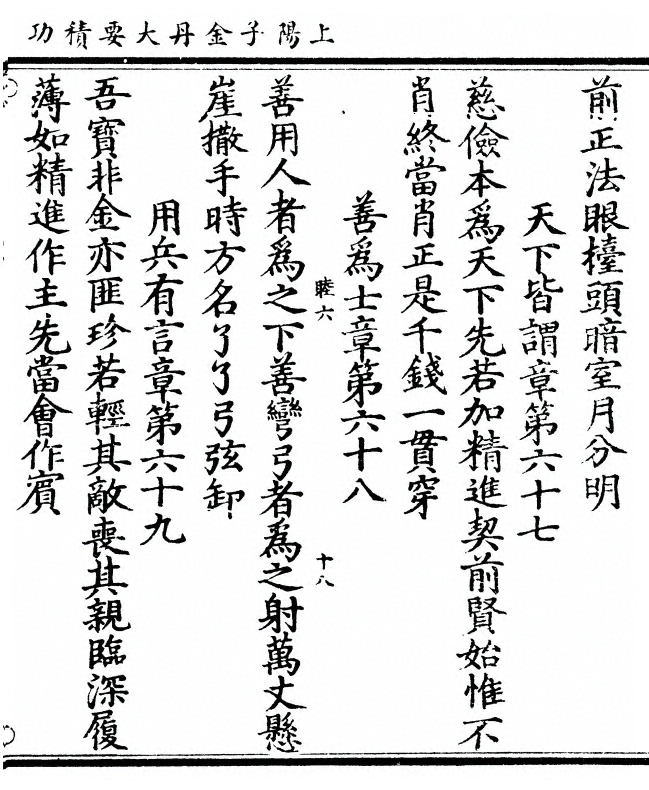 上陽子金丹大要積功
前正法眼擡頭暗室月分明
天下皆謂章第六十七
慈儉本爲天下先若加精進契前賢始惟不
肖終當肖正是千錢一貫穿
善爲士章第六十八
睦六
十八
善用人者爲之下善彎弓者爲之射萬丈懸
崖撒手時方名了了弓弦卸
用兵有言章第六十九
吾寶非金亦匪珍若輕其敵喪其親臨深履
薄如精進作主先當會作賓